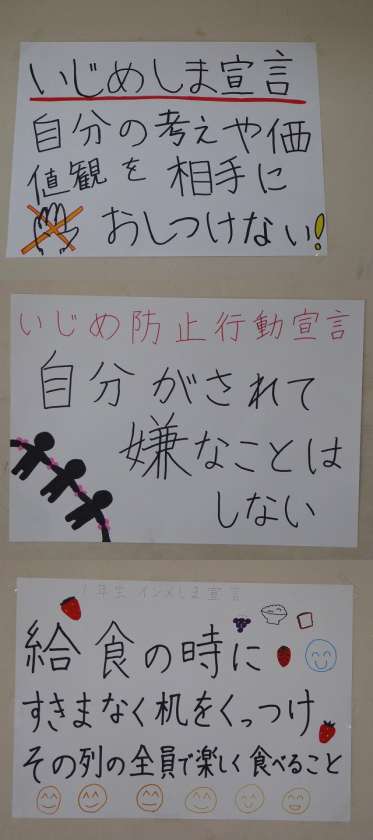 いじめしま宣言
自分の考えや価
値観を相手に
おしつけない!
いじめ防止行動宣言
自分がされて
嫌なことは
しない
1年生 インメしま宣言
給食の時に
すきまなく机をくっつけ
その列の全員で楽しく食べること